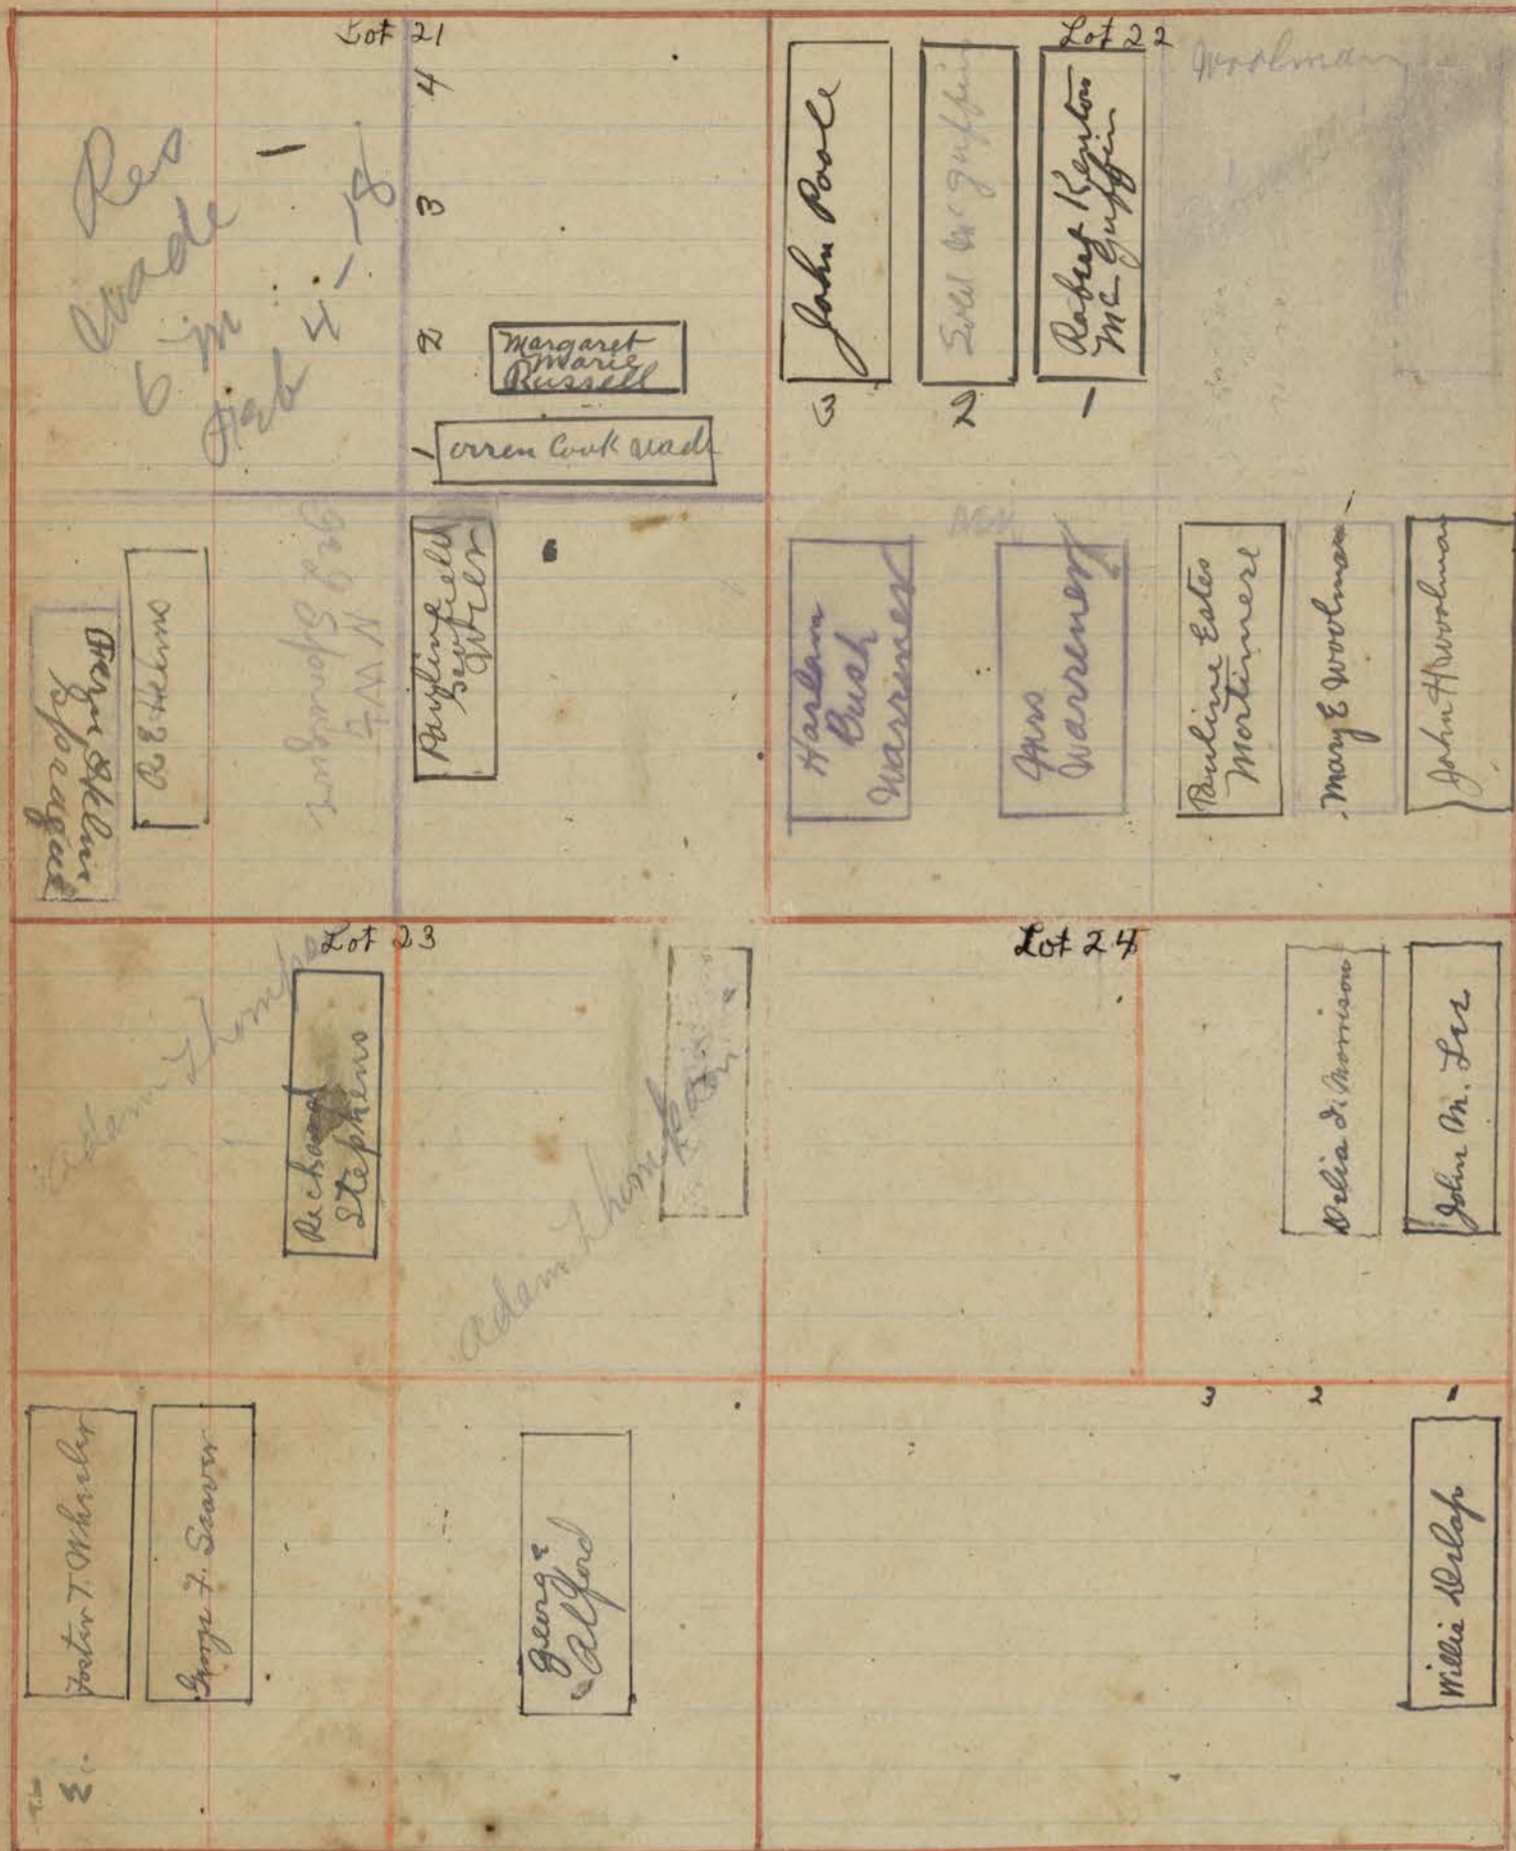 Lot 21
Res
Wade
6 in
Feb 4-18
4
3
2
Margaret
Marie
Russell
1
Orren Cook Wade
R E Helms
N W ¼
Pauline
Lot 22
Woolman
John Poole
3
2
Robert Kenton
McGuffin
1
Harlan
Bush
Warriner
Warrener
Pauline Estes
Mortimere
Mary E Woolman
John H Woolman
Lot 23
Adam Thompson
Richard
Stephens
Adam Thompson
Foster T. Wheeler
George F. Seaver
George
Alford
Lot 24
Delia F. Morrison
John M. Lee
3
2
1
Willie Delap